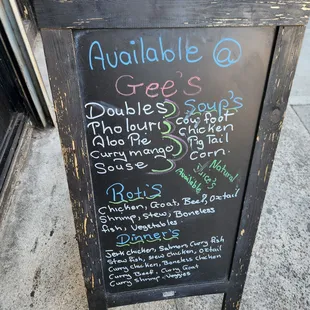 Available @
Gee's
Doubles
Pholouri
Aloo Pie
Curry mango
Souse
Soup's
Cow foot
Chicken
Pg Tail
Corn
Natural
Juice's
Available
Roti's
Chicken, Goat, Beef, Oxtail
Shrimp, Stew, Boneless
fish, Vegetables
Dinner's
Jerk chicken, Salmon, Curry fish
Stew fish, Stew chicken, Oxtail
Curry chicken, Boneless chicken
Curry Beef, Curry Goat
Curry shrimp, Veggies